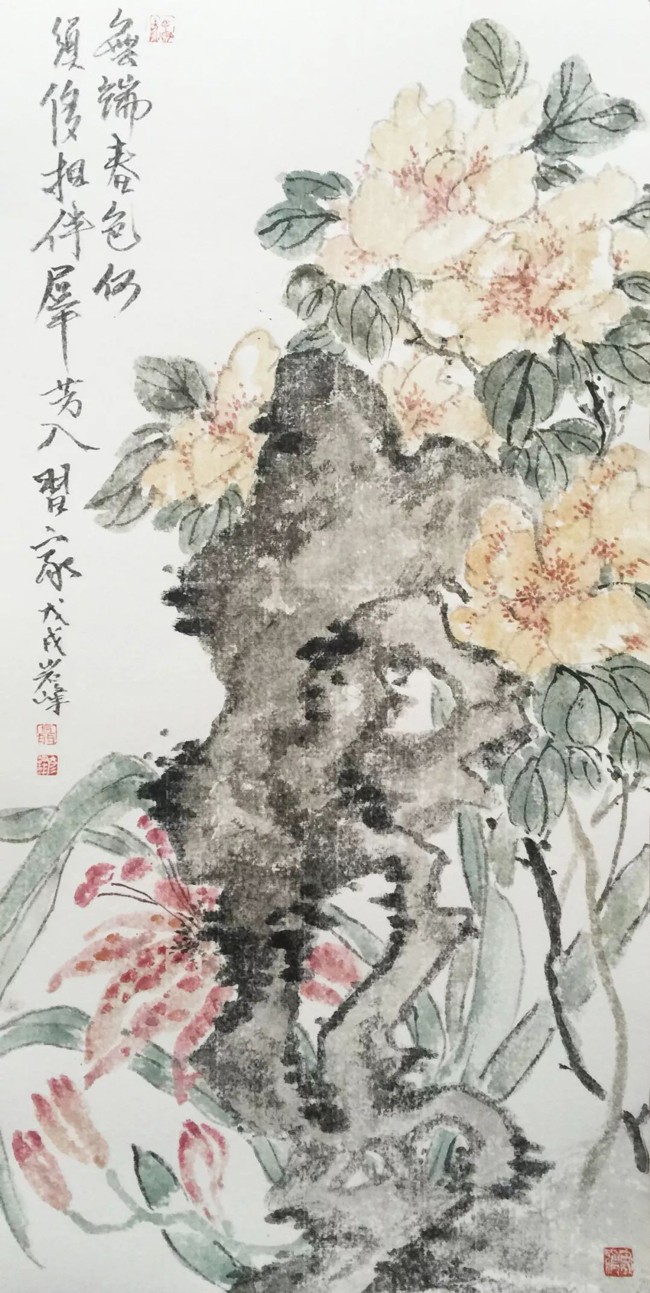 無端春色何
須相伴羣芳入習家 戊戌岩峰